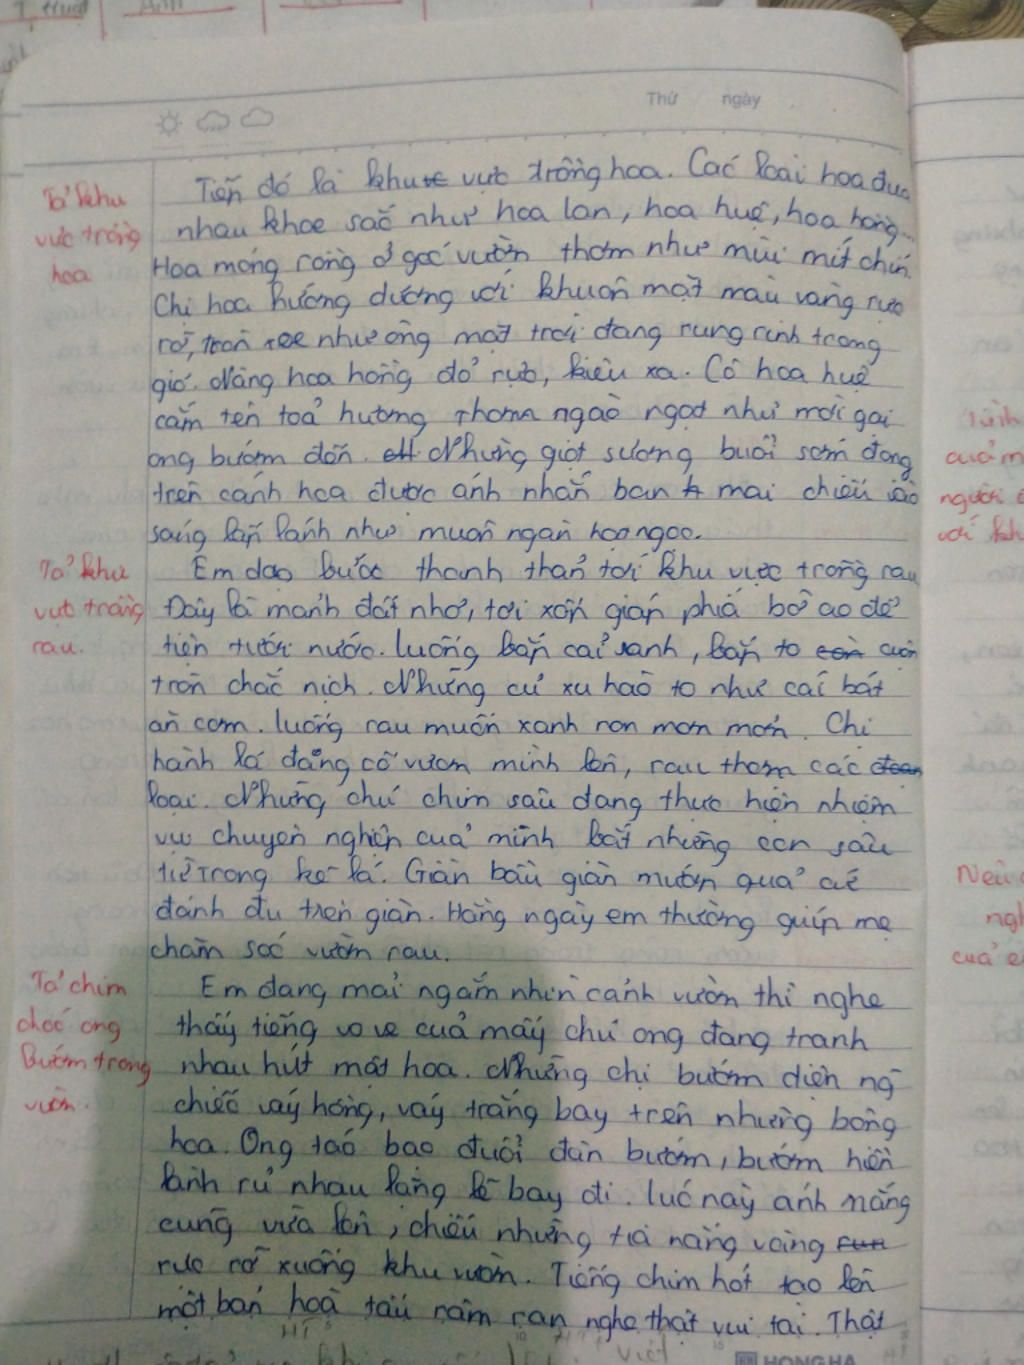 Thứ ngày
Tả khu
vực trồng
hoa
Tiến đó là khu vực trồng hoa. Các loài hoa đua
nhau khoe sắc như hoa lan, hoa huệ, hoa hồng...
Hoa móng rồng ở góc vườn thơm như mùi mít chín.
Chị hoa hướng dương với khuôn mặt màu vàng rực
rỡ, tròn xoe như ông mặt trời đang rung rinh trong
gió. Nàng hoa hồng đỏ rực, kiêu xa. Cô hoa huệ
cắm tên toả hương thơm ngào ngạt như mời gọi
ong bướm đến. Những giọt sương buổi sớm đọng
trên cánh hoa được ánh nhắn ban mai chiếu vào
sáng lấp lánh như muôn ngàn hạt ngọc.
Tả khu
vực trồng
rau.
Em dạo bước thanh thản tới khu vực trồng rau
Đây là mảnh đất nhỏ, tơi xốp giáp phía bờ ao để
tiện tưới nước. luống bắp cải xanh, bắp to cuộn
tròn chắc nịch. Những củ xu hào to như cái bát
ăn cơm. luống rau muốn xanh non mơn mởn. Chị
hành lá đang cố vươn mình lên, rau thơm các
loại. Những chú chim sâu đang thực hiện nhiệm
vụ chuyên nghiệp của mình bắt những con sâu
trong kẽ lá. Giàn bầu giàn mướp quả
đánh đu trên giàn. Hàng ngày em thường giúp mẹ
chăm sóc vườn rau.
Tả chim
chóc ong
bướm trong
vườn.
Em đang mải ngắm nhìn cảnh vườn thì nghe
thấy tiếng vo ve của mấy chú ong đang tranh
nhau hút mật hoa. Những chị bướm diện
chiếc váy hồng, váy trắng bay trên những bông
hoa. Ong táo bạo đuổi đàn bướm, bướm hiền
lành rủ nhau lặng lẽ bay đi. lúc này ánh nắng
cũng vừa lên, chiếu những tia nắng vàng
rực rỡ xuống khu vườn. Tiếng chim hót tạo lên
một bản hoà tấu râm ran nghe thật vui tai. Thật
HONG HA